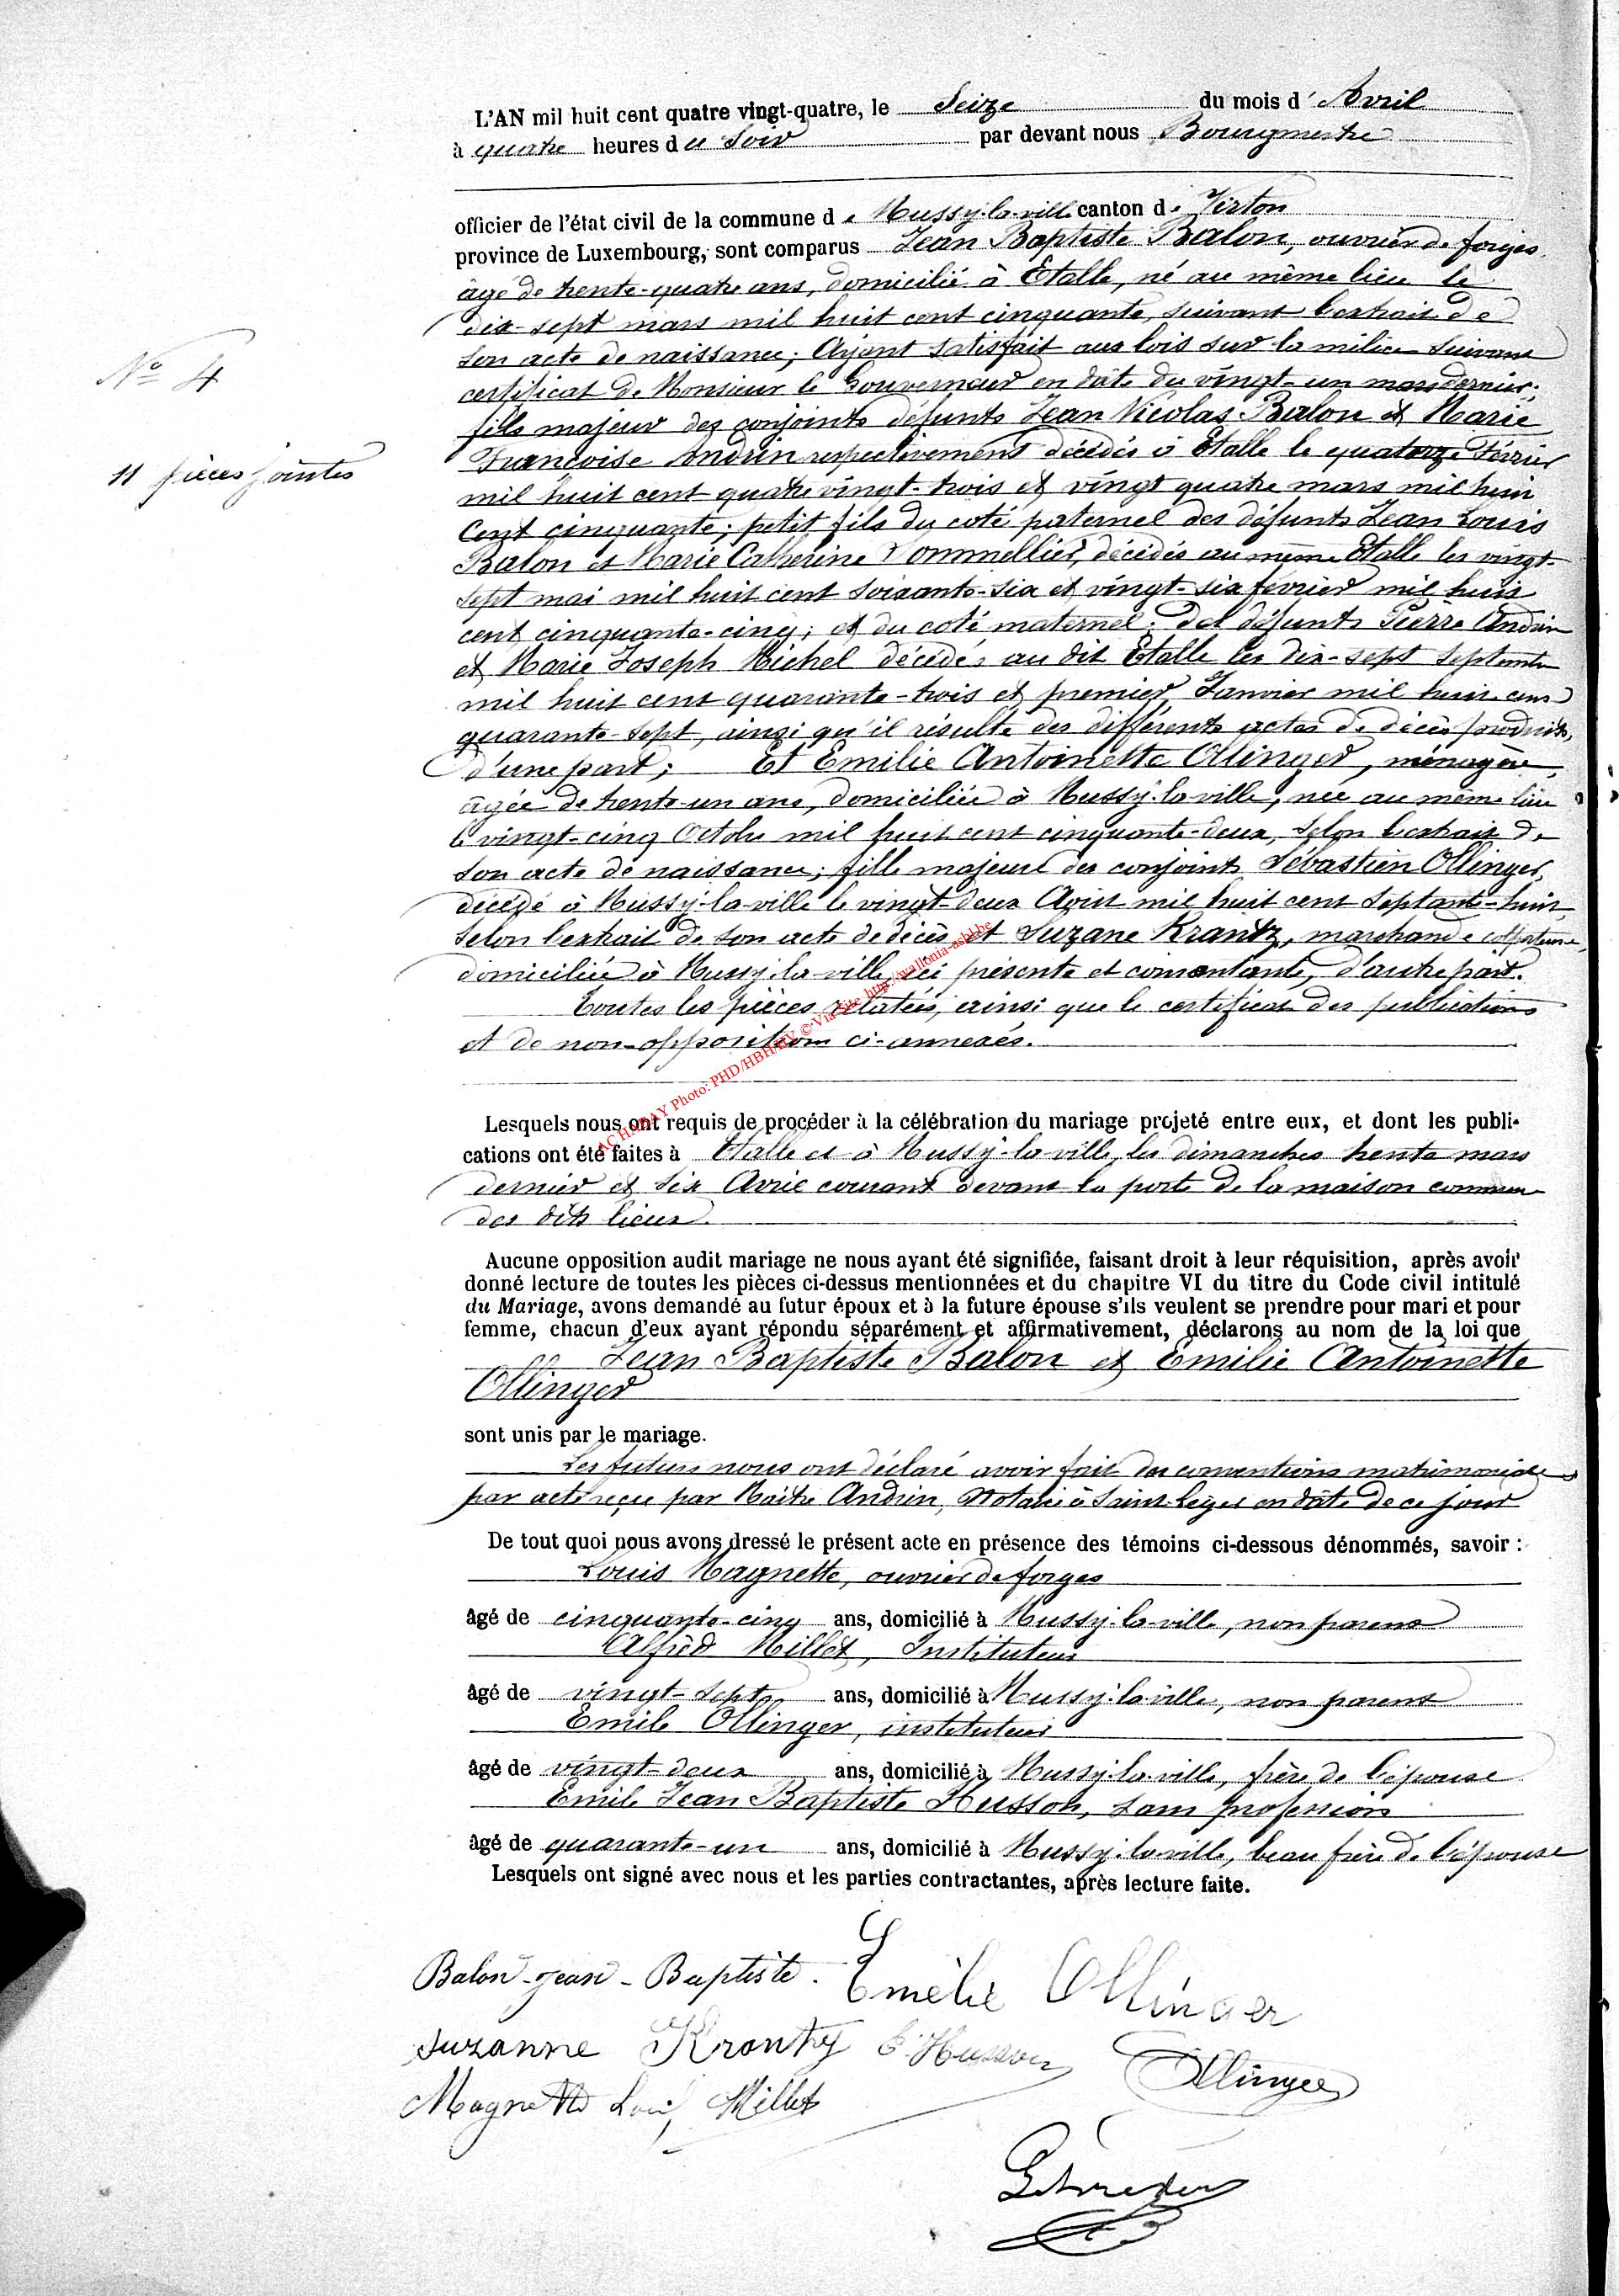 L'AN mil huit cent quatre vingt-quatre, le Seize du mois d'Avril
à quatre heures du Soir par devant nous Bourgmestre
officier de l'état civil de la commune de Mussy-la-ville canton de Virton
province de Luxembourg, sont comparus Jean Baptiste Balon, ouvrier de forges
âgé de trente-quatre ans, domicilié à Etalle, né au même lieu le
dix-sept mars mil huit cent cinquante, suivant l'extrait de
son acte de naissance; Ayant satisfait aux lois sur la milice suivant
certificat de Monsieur le Gouverneur en date du vingt-un mars dernier;
fils majeur des conjoints défunts Jean Nicolas Balon et Marie
Françoise Andrin respectivement décédés à Etalle le quatorze Février
mil huit cent quatre vingt-trois et vingt quatre mars mil huit
Cent cinquante; petit fils du coté paternel des défunts Jean Louis
Balon et Marie Catherine Pommellier, décédés au même Etalle les vingt-
sept mai mil huit cent soixante-six et vingt-six février mil huit
cent cinquante-cinq; et du coté maternel: des défunts Pierre Andrin
et Marie Joseph Michel décédés au dit Etalle les dix-sept Septembre
mil huit cent quarante-trois et premier Janvier mil huit cent
quarante-sept, ainsi qu'il résulte des différents actes de décès produits,
d'une part; Et Emilie Antoinette Ollinger, ménagère,
âgée de trente-un ans, domiciliée à Mussy-la-ville, née au même lieu
le vingt-cinq Octobre mil huit cent cinquante-deux, selon l'extrait de
son acte de naissance; fille majeure des conjoints Sébastien Ollinger,
décédé à Mussy-la-ville le vingt-deux Août mil huit cent septante-huit,
selon l'extrait de son acte de décès et Suzane Krantz, marchande colporteuse,
domiciliée à Mussy-la-ville, ici présente et consentante, d'autre part.
Toutes les pièces relatées, ainsi que le certificat des publications
et de non-opposition ci-annexés.
Lesquels nous ont requis de procéder à la célébration du mariage projeté entre eux, et dont les publi-
cations ont été faites à Etalle et à Mussy-la-ville, les dimanches trente mars
dernier et six Avril courant devant la porte de la maison commune
des dits lieux.
Aucune opposition audit mariage ne nous ayant été signifiée, faisant droit à leur réquisition, après avoir
donné lecture de toutes les pièces ci-dessus mentionnées et du chapitre VI du titre du Code civil intitulé
du Mariage, avons demandé au futur époux et à la future épouse s'ils veulent se prendre pour mari et pour
femme, chacun d'eux ayant répondu séparément et affirmativement, déclarons au nom de la loi que
Jean Baptiste Balon et Emilie Antoinette
Ollinger
sont unis par le mariage.
Les futurs nous ont déclaré avoir fait des conventions matrimoniales
par acte reçu par Maître Andrin, Notaire à Saint-Léger en date de ce jour
De tout quoi nous avons dressé le présent acte en présence des témoins ci-dessous dénommés, savoir :
Louis Magnette, ouvrier de forges
âgé de cinquante-cinq ans, domicilié à Mussy-la-ville, non parent
Alfred Millet, Instituteur
âgé de vingt-sept ans, domicilié à Mussy-la-ville, non parent
Emile Ollinger, instituteur
âgé de vingt-deux ans, domicilié à Mussy-la-ville, frère de l'épouse
Emile Jean Baptiste Husson, sans profession
âgé de quarante-un ans, domicilié à Mussy-la-ville, beau frère de l'épouse
Lesquels ont signé avec nous et les parties contractantes, après lecture faite.
Balon-Jean-Baptiste. Emélie Ollinger
Suzanne Krantz E. Husson Ollinger
Magnette Louis Millet
No 4
11 pièces jointes
AC HABAY Photo: PHD/HBH/HV © Via Site http://wallonia-asbl.be